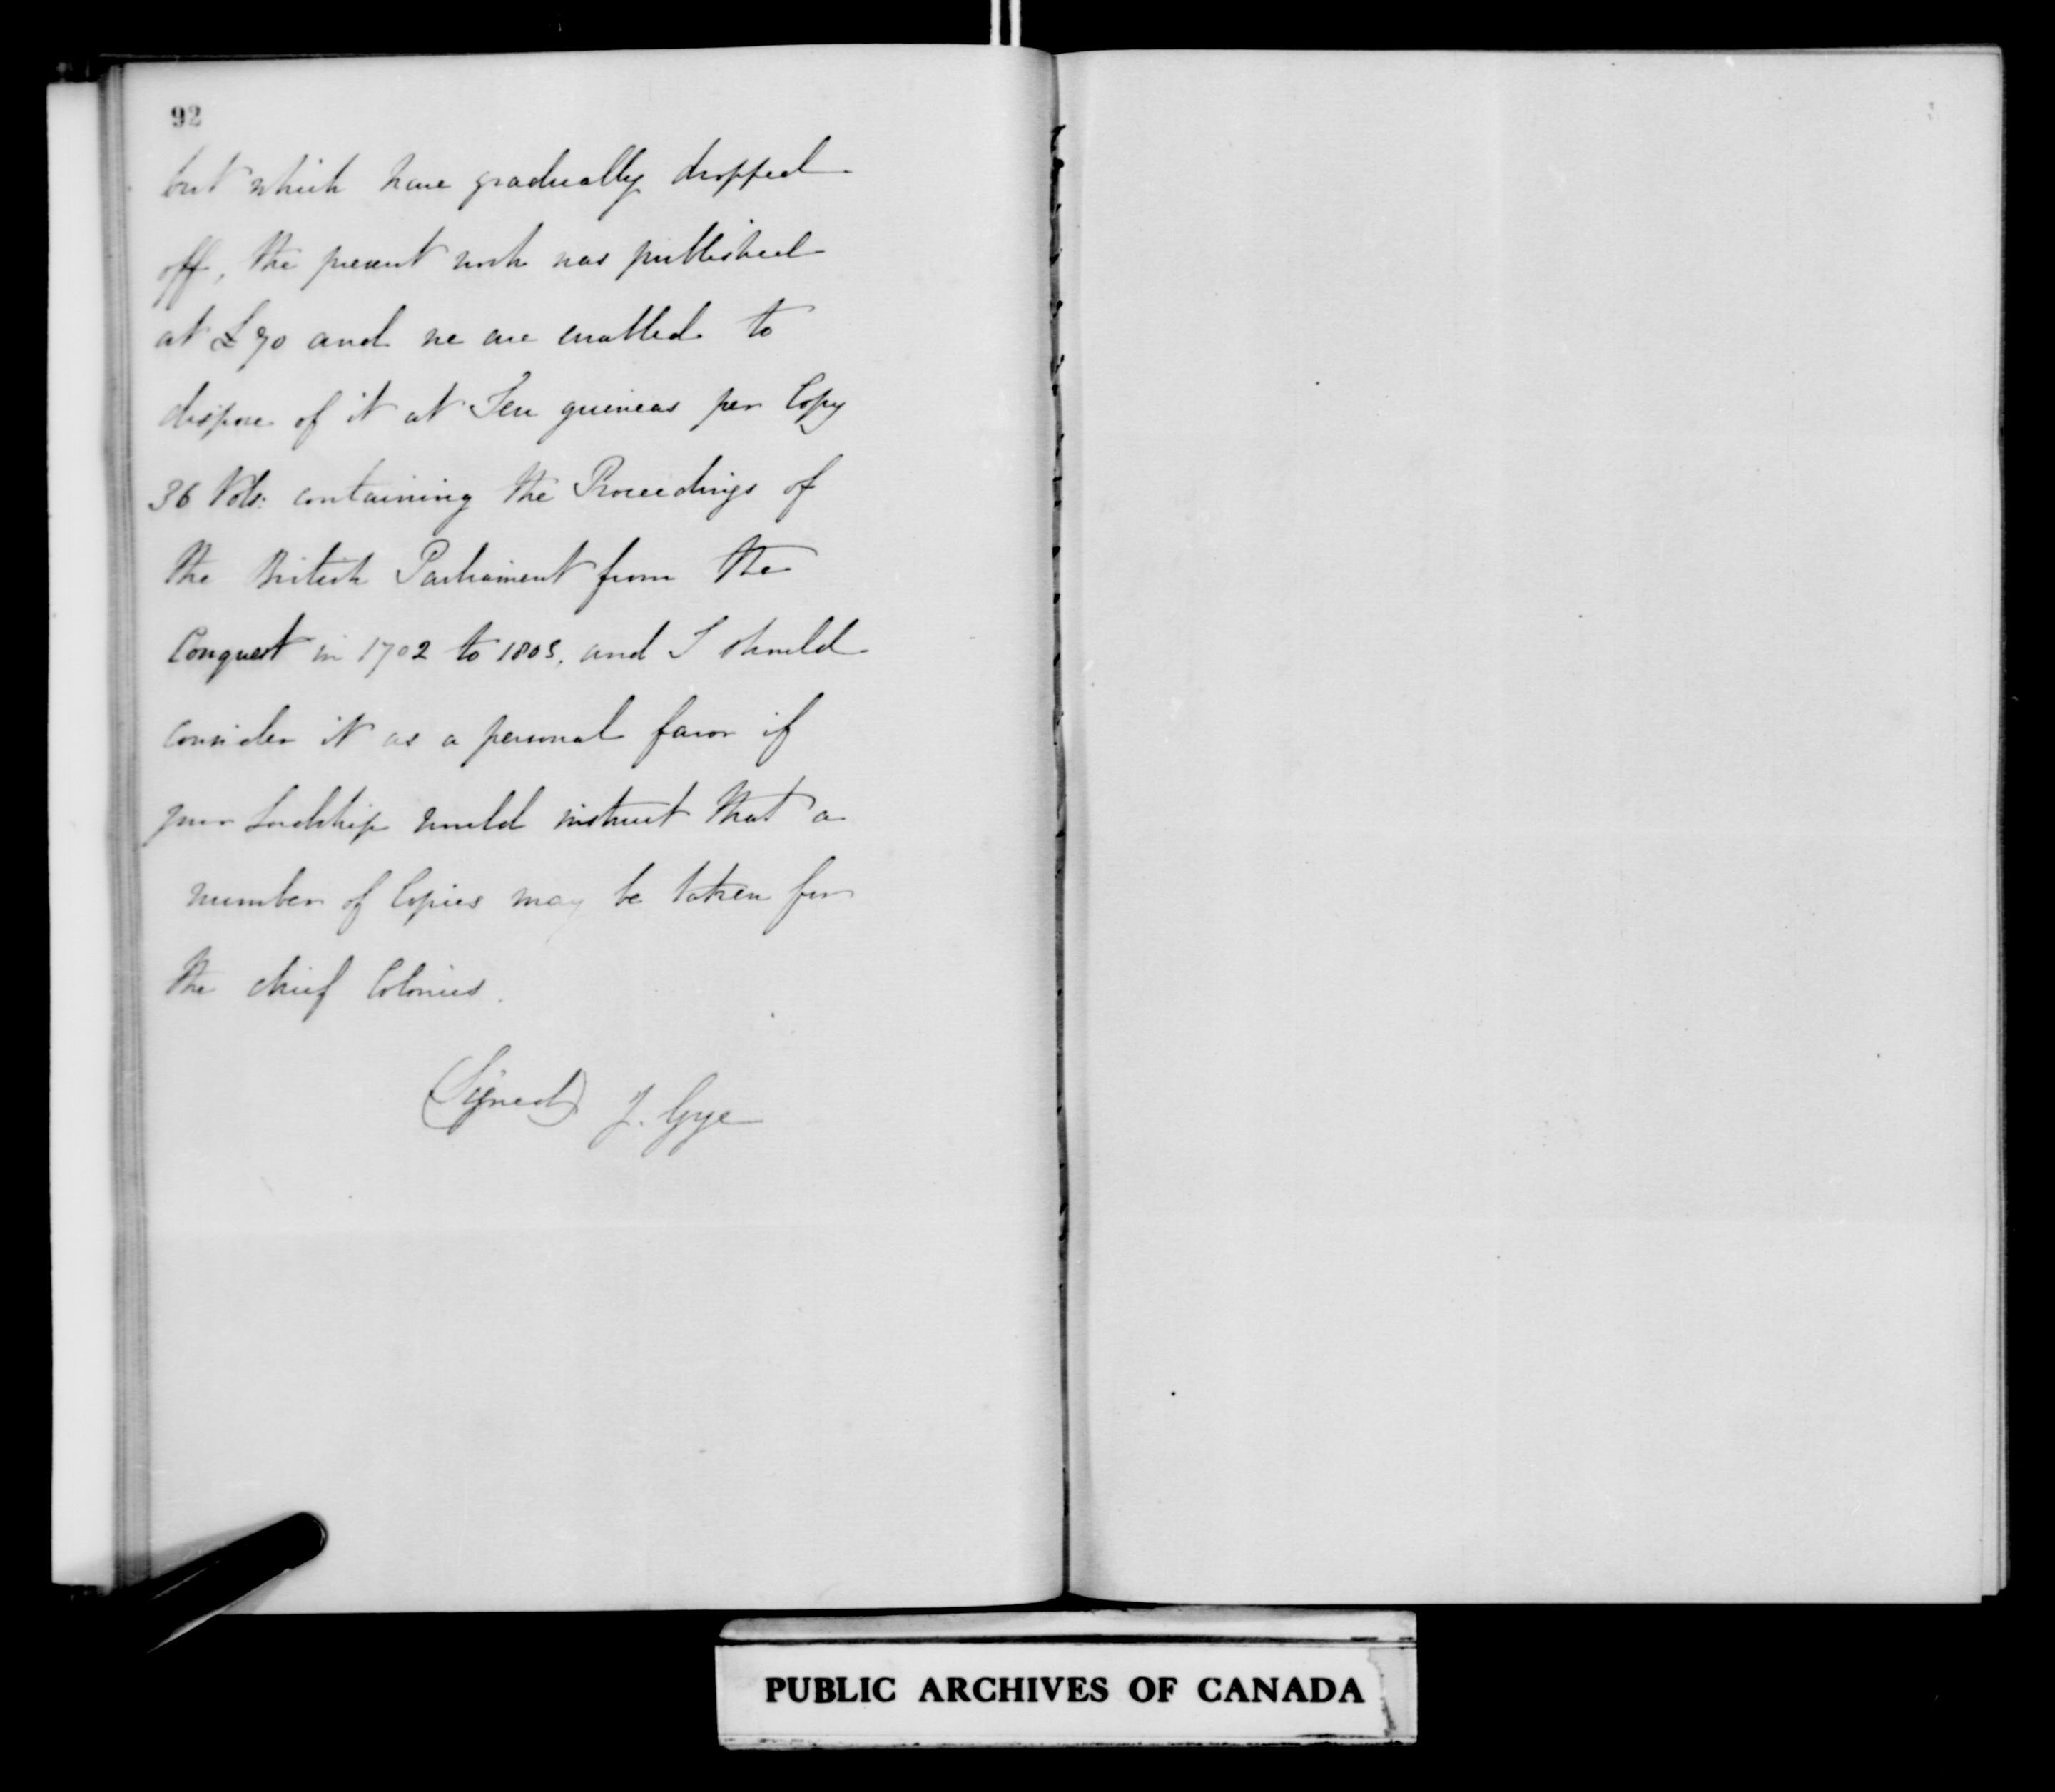 92
but which have gradually dropped
off, the present work was published
at £70 and we are enabled to
dispose of it at Ten guineas per Copy
36 Vols: containing the Proceedings of
the British Parliament from the
Conquest in 1702 to 1803, and I should
consider it as a personal favor if
your Lordship would instruct that a
number of Copies may be taken for
the chief Colonies.
(Signed) J. Gye
PUBLIC ARCHIVES OF CANADA